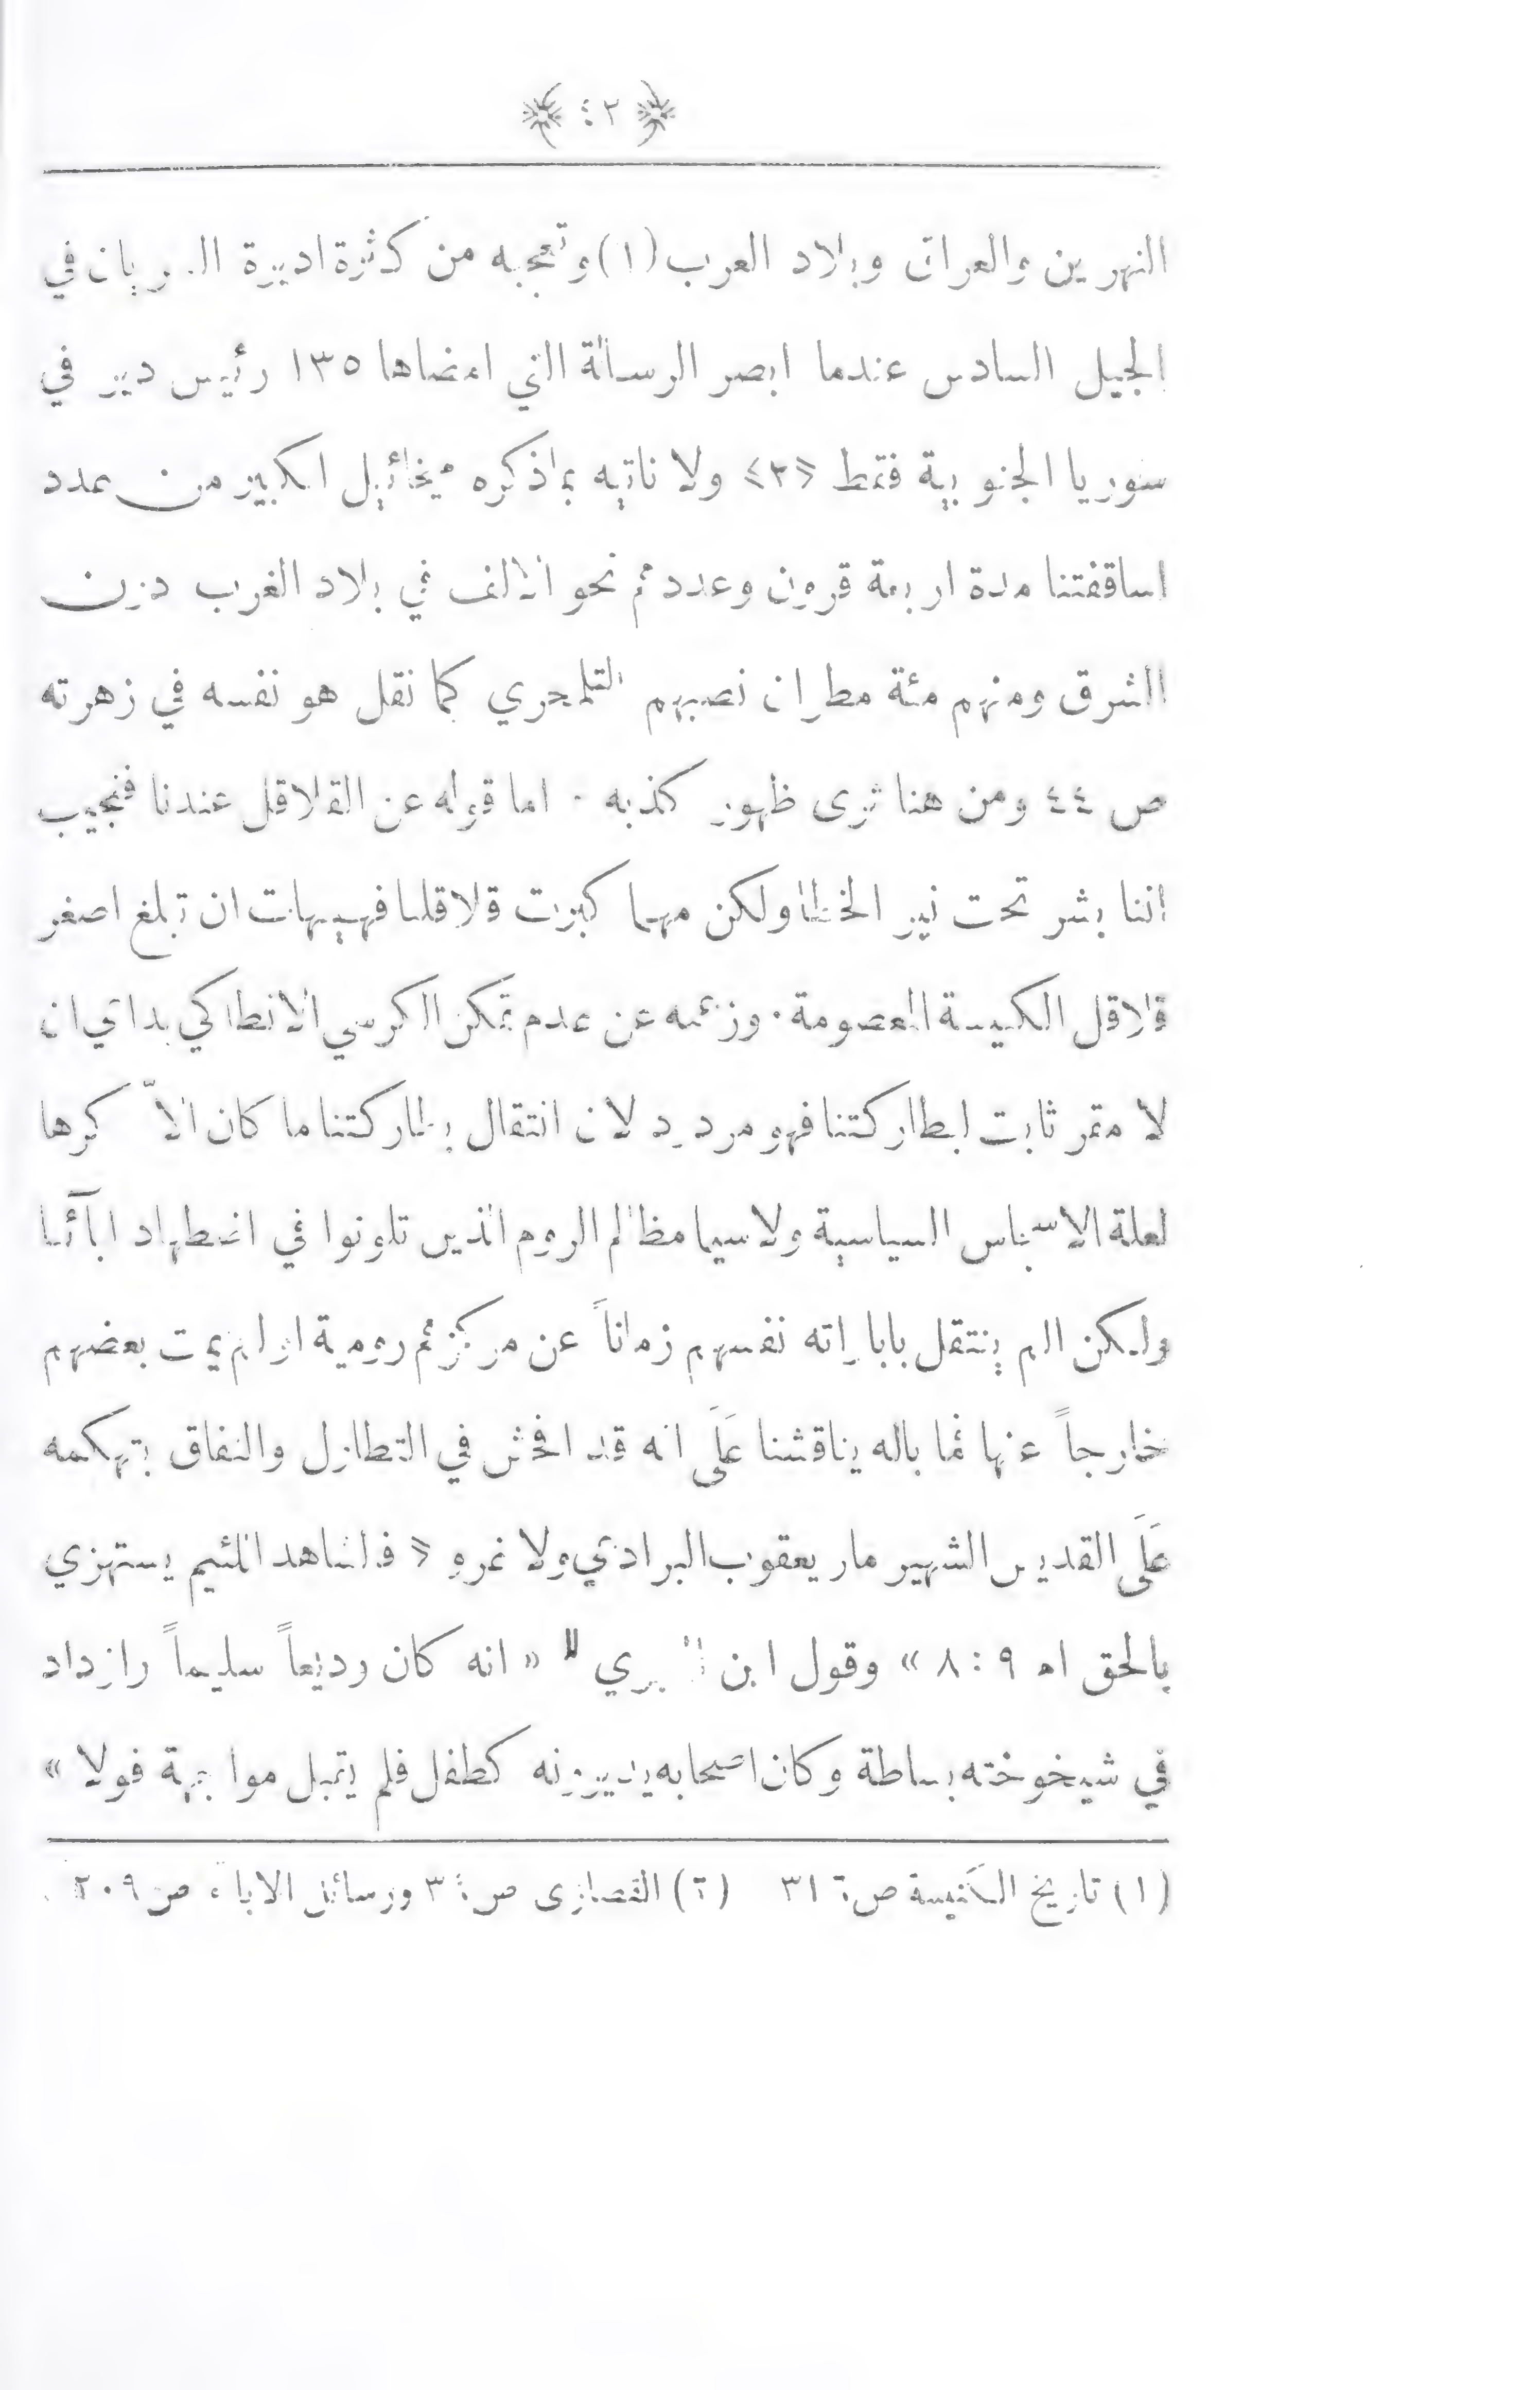 ﴿ ٤٢ ﴾
النهرين والعراق وبلاد العرب (١) وتعجبه من كثرة اديرة السريان في
الجيل السادس عندما ابصر الرسالة التي امضاها ١٣٥ رئيس دير في
سوريا الجنوبية فقط «٢» ولا ناتيه بما ذكره ميخائيل الكبير من عدد
اساقفتنا مدة اربعة قرون وعددهم نحو الالف في بلاد الغرب دون
الشرق ومنهم مئة مطران نصبهم التلمحري كما نقل هو نفسه في زهرته
ص ٤٤ ومن هنا ترى ظهور كذبه . اما قوله عن القلاقل عندنا فنجيب
اننا بشر تحت نير الخطا ولكن مهما كبرت قلاقلنا فهيهات ان تبلغ اصغر
قلاقل الكنيسة المعصومة . وزعمه عن عدم تمكن الكرسي الانطاكي بداي ان
لا مقر ثابت لبطاركتنا فهو مردود لان انتقال بطاركتنا ما كان الاّ كرها
لعلة الاسباس السياسية ولاسيما مظالم الروم الذين تلونوا في اضطهاد ابآئنا
ولكن الم ينتقل باباواته نفسهم زماناً عن مركزهم رومية او لم يمت بعضهم
خارجاً عنها فما باله يناقشنا عَلَى انه قد افحش في التطاول والنفاق بتهكمه
عَلَى القديس الشهير مار يعقوب البرادي ولا غرو « فالشاهد اللئيم يستهزي
بالحق ام ٩ : ٨ » وقول ابن العبري " « انه كان وديعاً سليماً وازداد
في شيخوخته بساطة وكان اصحابه يديرونه كطفل فلم يقبل مواجهة فولا »
(١) تاريخ الكنيسة ص ٣١ (٢) القصارى ص ٣ ورسائل الاباء ص ٢٠٩